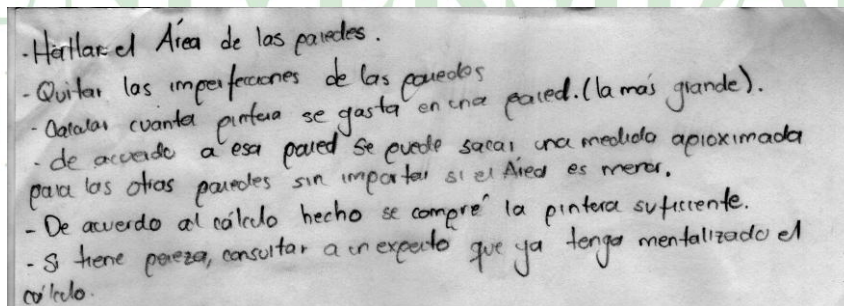 - Hallar el Área de las paredes.
- Quitar las imperfecciones de las paredes
- Calcular cuanta pintura se gasta en una pared. (la más grande).
- de acuerdo a esa pared se puede sacar una medida aproximada
para las otras paredes sin importar si el Área es menor.
- De acuerdo al cálculo hecho se compré la pintura suficiente.
- Si tiene pereza, consultar a un experto que ya tenga mentalizado el
cálculo.